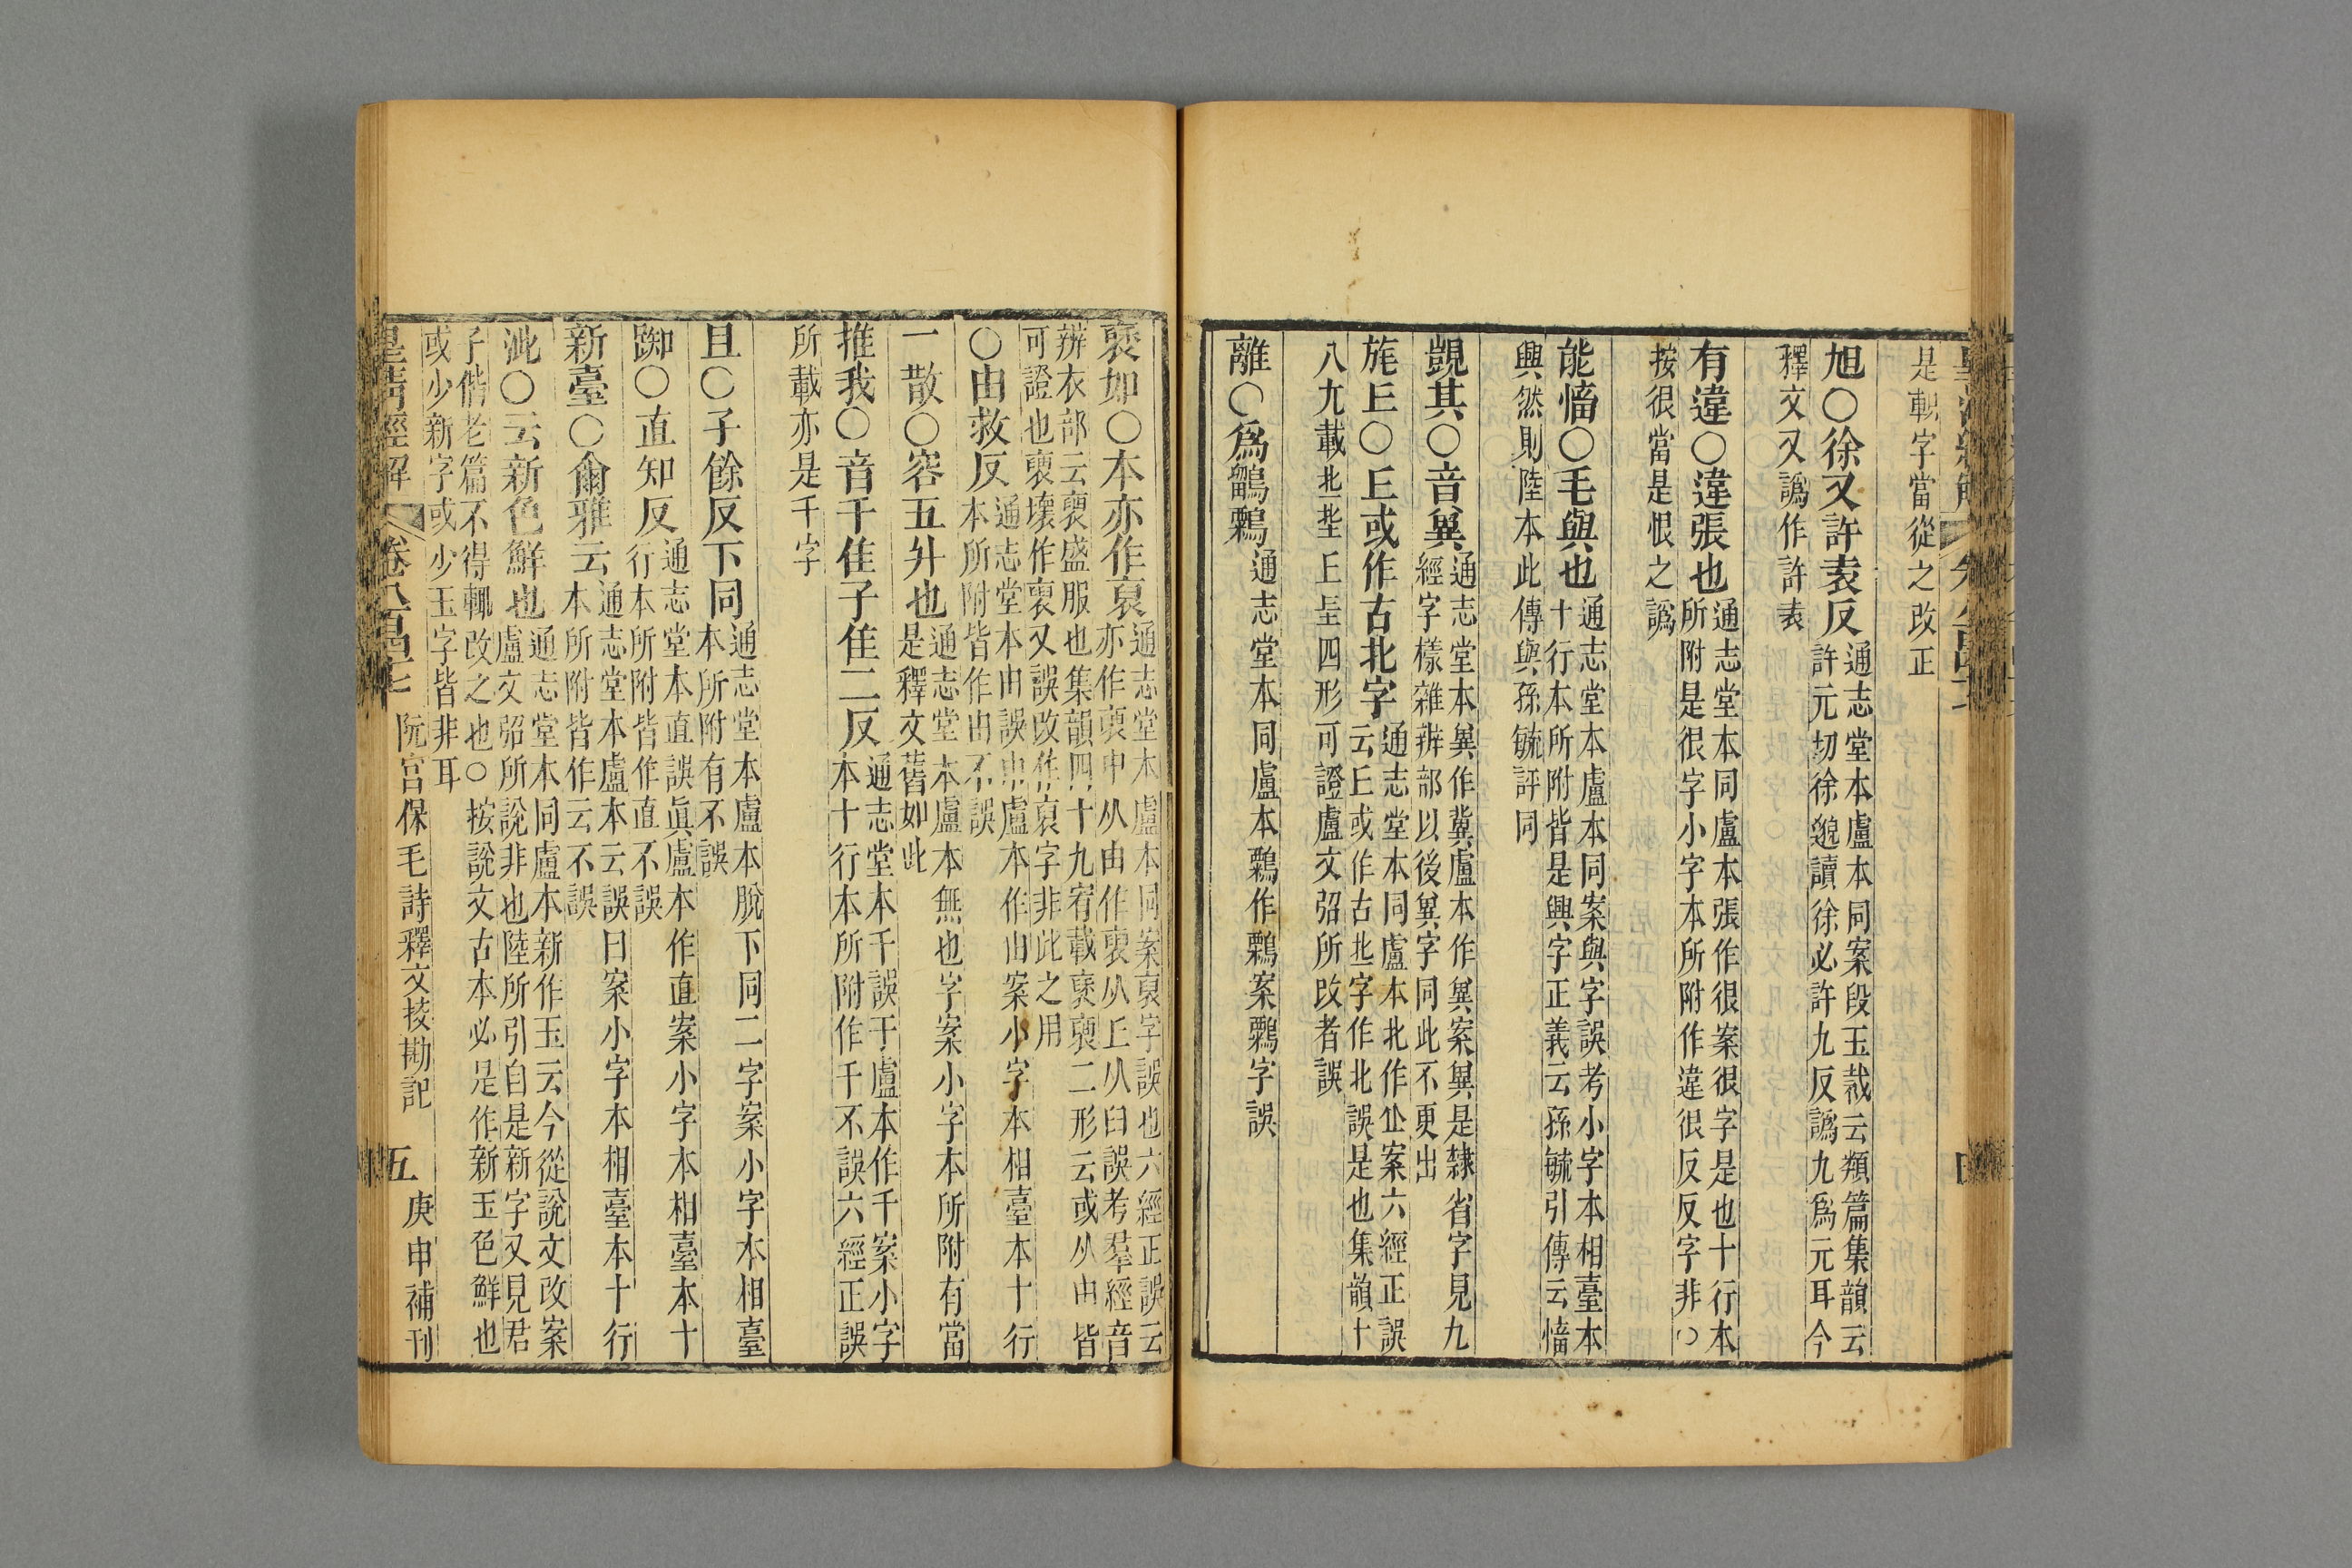 是軹字當從之改正
旭○徐又許袁反通志堂本盧本同案段玉裁云類篇集韻云
許元切徐邈讀徐必許九反譌九爲元耳今
釋文又譌作許袁
有違○違張也通志堂本同盧本張作很案很字是也十行本
所附是很字小字本所附作違很反反字非○
按很當是恨之譌
能慉○毛與也通志堂本盧本同案與字誤考小字本相臺本
十行本所附皆是興字正義云孫毓引傳云慉
興然則陸本此傳與孫毓評同
覬其○音兾通志堂本兾作冀盧本作兾案兾是隸省字見九
經字樣雜辨部以後兾字同此不更出
旄丘○丘或作古北字通志堂本同盧本北作㐀案六經正誤
云丘或作古北字作北誤是也集韻十
八九載北丠丘坵四形可證盧文弨所改者誤
離○爲鶹鷅通志堂本同盧本鷅作鷅案鷅字誤
褎如○本亦作裒通志堂本盧本同案裒字誤也六經正誤云
亦作裒中从由作褏从丘从臼誤考羣經音
辨衣部云褏盛服也集韻四十九宥載褎褏二形云或从由皆
可證也褏壞作裒又誤改作裒字非此之用
○由救反通志堂本由誤由盧本作由案小字本相臺本十行
本所附皆作由不誤
一散○容五升也通志堂本盧本無也字案小字本所附有當
是釋文舊如此
摧我○音千隹子隹二反通志堂本千誤于盧本作千案小字
本十行本所附作千不誤六經正誤
所載亦是千字
且○子餘反下同通志堂本盧本脫下同二字案小字本相臺
本所附有不誤
踟○直知反通志堂本直誤眞盧本作直案小字本相臺本十
行本所附皆作直不誤
新臺○爾雅云通志堂本盧本云誤曰案小字本相臺本十行
本所附皆作云不誤
泚○云新色鮮也通志堂本同盧本新作玉云今從說文改案
盧文弨所說非也陸所引自是新字又見君
子偕老篇不得輒改之也○按說文古本必是作新玉色鮮也
或少新字或少玉字皆非耳
皇清經解 卷八百四七 阮宮保毛詩釋文挍勘記 五 庚申補刊